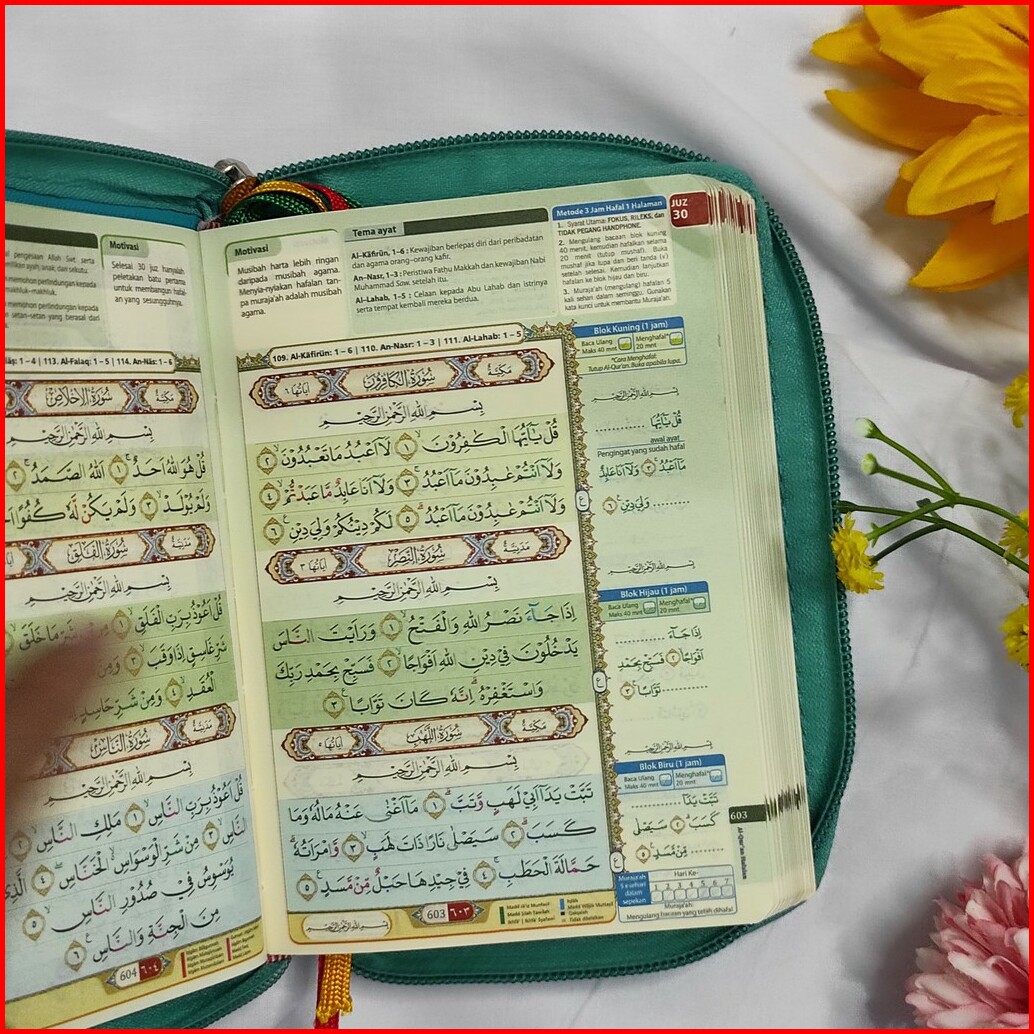 Motivasi
Musibah harta lebih ringan
daripada musibah agama.
Menyia-nyiakan hafalan tan-
pa muraja'ah adalah musibah
agama.
Tema ayat
Al-Kāfirūn, 1–6 : Kewajiban berlepas diri dari peribadatan
dan agama orang-orang kafir.
An-Nasr, 1–3 : Peristiwa Fathu Makkah dan kewajiban Nabi
Muhammad Saw. setelah itu.
Al-Lahab, 1–5 : Celaan kepada Abu Lahab dan istrinya
serta tempat kembali mereka berdua.
Metode 3 Jam Hafal 1 Halaman
1. Syarat Utama: FOKUS, RILEKS, dan
TIDAK PEGANG HANDPHONE.
2. Mengulang bacaan blok kuning
40 menit, kemudian hafalkan selama
20 menit (tutup mushaf). Buka
mushaf jika lupa dan beri tanda (v)
setelah selesai. Kemudian lanjutkan
hafalan ke blok hijau dan biru.
3. Muraja'ah (mengulang) hafalan: 5
kali sehari dalam seminggu. Gunakan
kata kunci untuk membantu Muraja'ah.
JUZ
30
109. Al-Kāfirūn: 1 – 6 | 110. An-Nasr: 1 – 3 | 111. Al-Lahab: 1 – 5
مَكِّيَّة سُورَةُ الْكَافِرُونَ اٰيَاتُهَا ٦
بِسْمِ اللّٰهِ الرَّحْمٰنِ الرَّحِيْمِ
قُلْ يٰٓاَيُّهَا الْكٰفِرُوْنَۙ ١ لَآ اَعْبُدُ مَا تَعْبُدُوْنَۙ ٢
وَلَآ اَنْتُمْ عٰبِدُوْنَ مَآ اَعْبُدُۚ ٣ وَلَآ اَنَا۠ عَابِدٌ مَّا عَبَدْتُّمْۙ ٤
وَلَآ اَنْتُمْ عٰبِدُوْنَ مَآ اَعْبُدُۗ ٥ لَكُمْ دِيْنُكُمْ وَلِيَ دِيْنِ ࣖ ٦
مَدَنِيَّة سُورَةُ النَّصْرِ اٰيَاتُهَا ٣
بِسْمِ اللّٰهِ الرَّحْمٰنِ الرَّحِيْمِ
اِذَا جَاۤءَ نَصْرُ اللّٰهِ وَالْفَتْحُۙ ١ وَرَاَيْتَ النَّاسَ
يَدْخُلُوْنَ فِيْ دِيْنِ اللّٰهِ اَفْوَاجًاۙ ٢ فَسَبِّحْ بِحَمْدِ رَبِّكَ
وَاسْتَغْفِرْهُۗ اِنَّهٗ كَانَ تَوَّابًا ࣖ ٣
مَكِّيَّة سُورَةُ اللَّهَبِ اٰيَاتُهَا ٥
بِسْمِ اللّٰهِ الرَّحْمٰنِ الرَّحِيْمِ
تَبَّتْ يَدَآ اَبِيْ لَهَبٍ وَّتَبَّۗ ١ مَآ اَغْنٰى عَنْهُ مَالُهٗ وَمَا
كَسَبَۗ ٢ سَيَصْلٰى نَارًا ذَاتَ لَهَبٍۙ ٣ وَّامْرَاَتُهٗۗ
حَمَّالَةَ الْحَطَبِۚ ٤ فِيْ جِيْدِهَا حَبْلٌ مِّنْ مَّسَدٍ ࣖ ٥
603 ٦٠٣
Blok Kuning (1 jam)
Baca Ulang Maks 40 mnt
Menghafal* 20 mnt
*Cara Menghafal:
Tutup Al-Qur'an. Buka apabila lupa.
بِسْمِ اللّٰهِ الرَّحْمٰنِ الرَّحِيْمِ
قُلْ يٰٓاَيُّهَا ............
awal ayat
Pengingat yang sudah hafal
مَآ اَعْبُدُۚ ٣ وَلَآ اَنَا۠ عَابِدٌ
......... وَلِيَ دِيْنِ ࣖ ٦
بِسْمِ اللّٰهِ الرَّحْمٰنِ الرَّحِيْمِ
Blok Hijau (1 jam)
Baca Ulang Maks 40 mnt
Menghafal* 20 mnt
اِذَا جَاۤءَ ............
اَفْوَاجًاۙ ٢ فَسَبِّحْ بِحَمْدِ
............ تَوَّابًا ࣖ ٣
بِسْمِ اللّٰهِ الرَّحْمٰنِ الرَّحِيْمِ
Blok Biru (1 jam)
Baca Ulang Maks 40 mnt
Menghafal* 20 mnt
تَبَّتْ يَدَآ ............
كَسَبَۗ ٢ سَيَصْلٰى
......... مِّنْ مَّسَدٍ ࣖ ٥
603
Muraja'ah
5 x sehari
dalam
sepekan
Hari Ke-
1 2 3 4 5 6 7
Muraja'ah:
Mengulang bacaan yang telah dihafal
Motivasi
Selesai 30 juz hanyalah
peletakan batu pertama
untuk membangun hafal-
an yang sesungguhnya.
1 – 4 | 113. Al-Falaq: 1 – 5 | 114. An-Nās: 1 – 6
مَكِّيَّة سُورَةُ الْاِخْلَاصِ
بِسْمِ اللّٰهِ الرَّحْمٰنِ الرَّحِيْمِ
قُلْ هُوَ اللّٰهُ اَحَدٌۚ ١ اَللّٰهُ الصَّمَدُۚ ٢
وَلَمْ يُوْلَدْۙ ٣ وَلَمْ يَكُنْ لَّهٗ كُفُوًا
مَدَنِيَّة سُورَةُ الْفَلَقِ
بِسْمِ اللّٰهِ الرَّحْمٰنِ الرَّحِيْمِ
قُلْ اَعُوْذُ بِرَبِّ الْفَلَقِۙ ١ شَرِّ مَا خَلَقَۙ
شَرِّ غَاسِقٍ اِذَا وَقَبَۙ ٣ وَمِنْ
الْعُقَدِۙ ٤ وَمِنْ شَرِّ حَاسِدٍ
مَدَنِيَّة سُورَةُ النَّاسِ
بِسْمِ اللّٰهِ الرَّحْمٰنِ الرَّحِيْمِ
قُلْ اَعُوْذُ بِرَبِّ النَّاسِۙ ١ مَلِكِ النَّاسِۙ ٢
النَّاسِۙ ٣ مِنْ شَرِّ الْوَسْوَاسِ ەۙ الْخَنَّاسِۖ ٤ الَّذِيْ
يُوَسْوِسُ فِيْ صُدُوْرِ النَّاسِۙ ٥
مِنَ الْجِنَّةِ وَالنَّاسِ ࣖ ٦
604 ٦٠٤